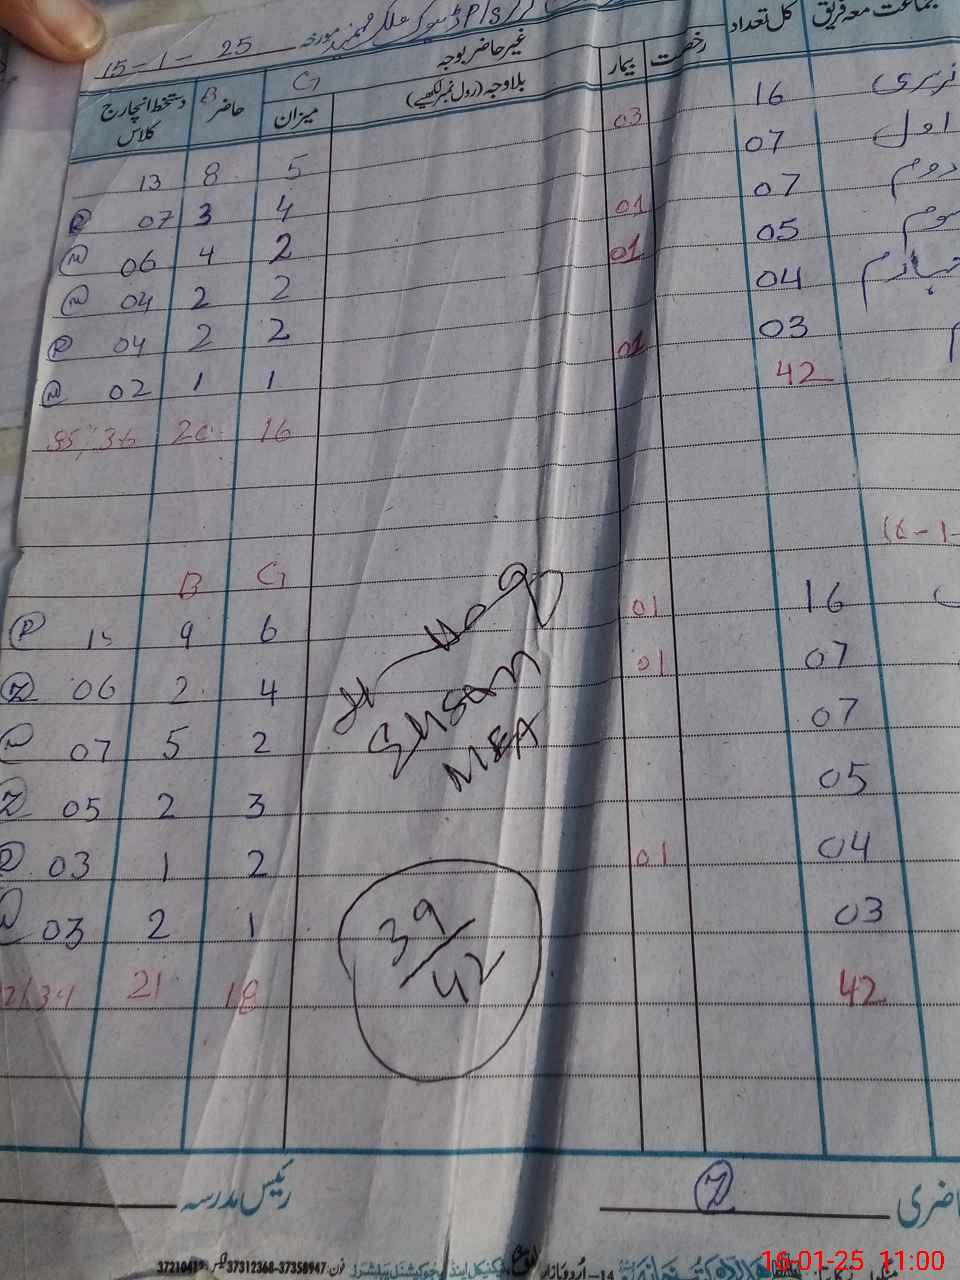 15-1-25 مورخہ
جماعت معہ فریق کل تعداد رخصت بیمار غیر حاضر بوجہ
بلاوجہ (رول نمبر لکھیے) میزان حاضر دستخط انچارج کلاس
G B
نرسری 16 03 5 8 13
اول 07 4 3 07
دوم 07 01 2 4 06
سوم 05 01 2 2 04
چہارم 04 2 2 04
03 01 1 1 02
42 16 20 36
G B
16 01 6 9 15
07 01 4 2 06
07 2 5 07
05 3 2 05
04 01 2 1 03
03 1 2 03
42 18 21
Ehsan
MEA
39/42
رئیس مدرسہ
37312368-37358947
14-اُردو بازار
16-01-25 11:00